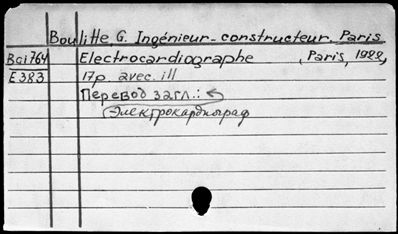 Boulitte G. Ingénieur-constructeur. Paris
Bci764 Electrocardiographe, Paris, 1922,
E383 17p. avec. ill
Перевод загл.:
Электрокардиограф